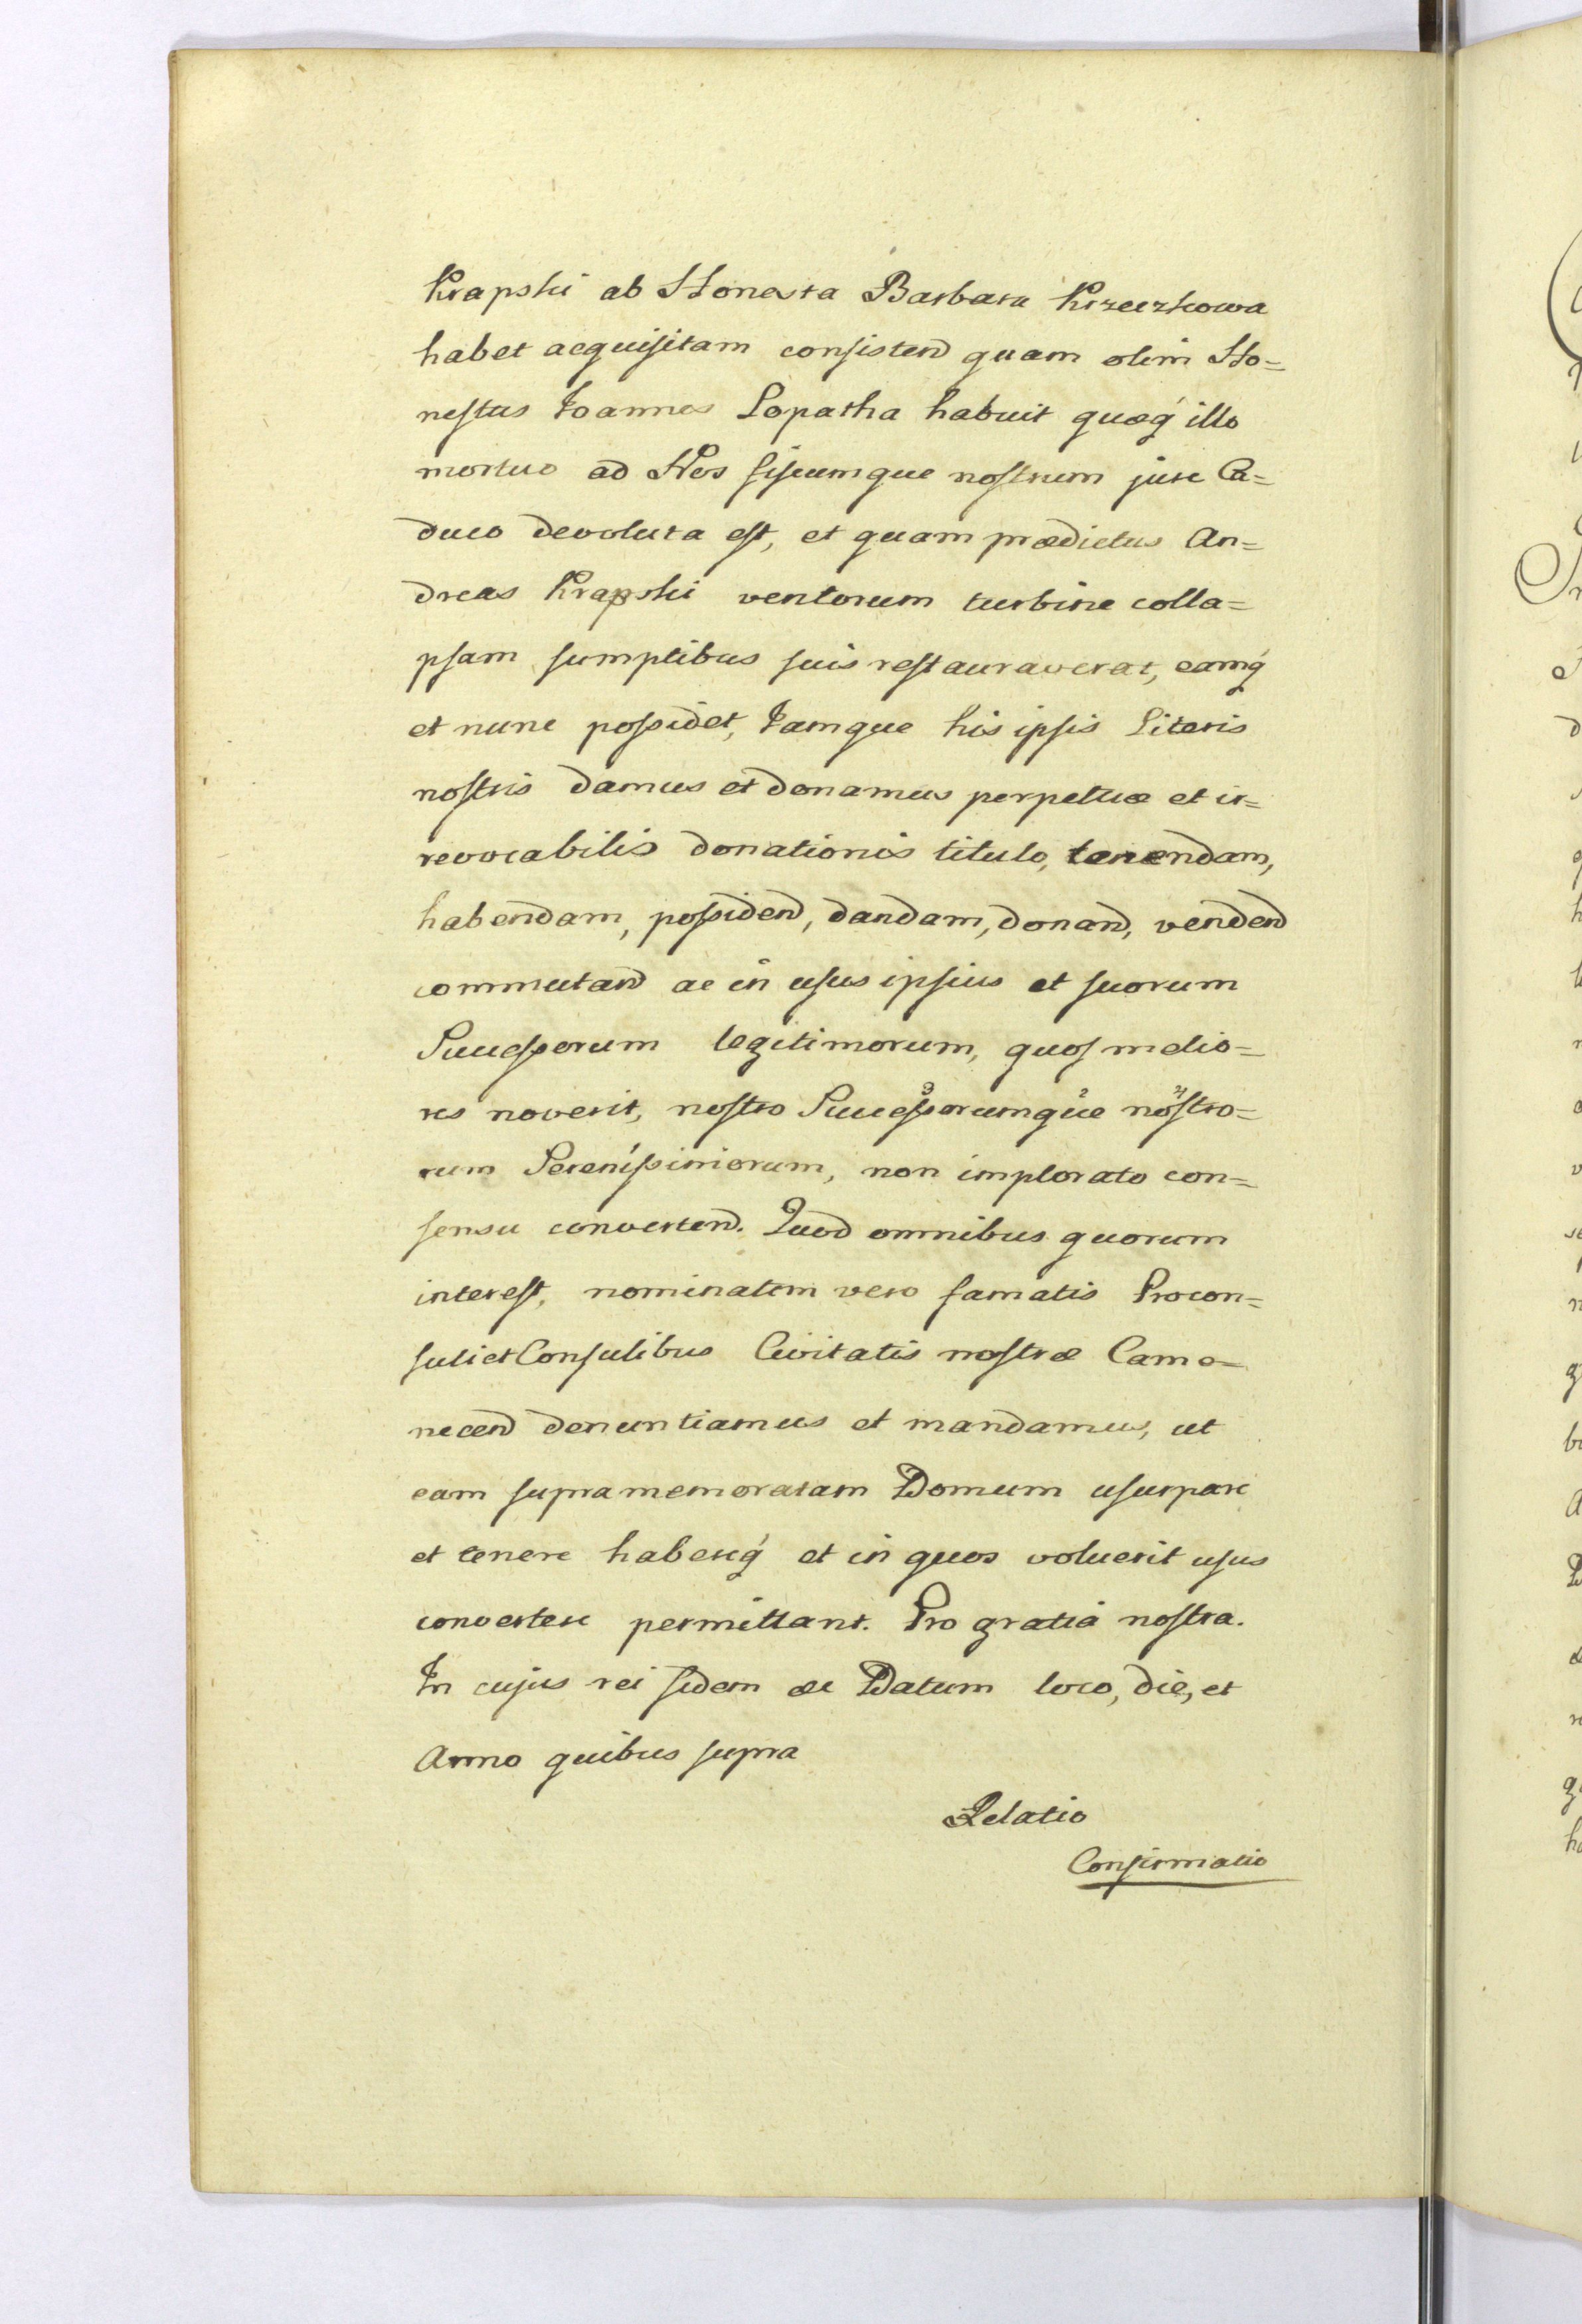 Krapski ab Honesta Barbara Krzeczkowa
habet acquisitam consistend quam olim Ho=
nestus Joannes Lopatha habuit quæq́ illo
mortuo ad Nos fiscumque nostrum jure Ca=
duco devoluta est, et quam prædictus An=
dreas Krapski ventorum turbine colla=
psam sumptibus suis restauraverat, eamq́
et nunc possidet, Jamque his ipsis Literis
nostris damus et donamus perpetuæ et ir=
revocabilis donationis titulo, tenendam,
habendam, possidend, dandam, donand, vendend
commutand ac in usus ipsius et suorum
Successorum legitimorum, quos melio=
res noverit, nostro Successorumque nostro=
rum Serenissimorum, non implorato con=
sensu convertend. Quod omnibus quorum
interest, nominatim vero famatis Procon=
suli et Consulibus Civitatis nostræ Came=
necend denuntiamus et mandamus, ut
eam supra memoratam Domum usurpare
et tenere habereq́ et in quos voluerit usus
convertere permittant. Pro gratia nostra.
In cujus rei fidem &c Datum loco, die, et
Anno quibus supra
Relatio
Confirmatio